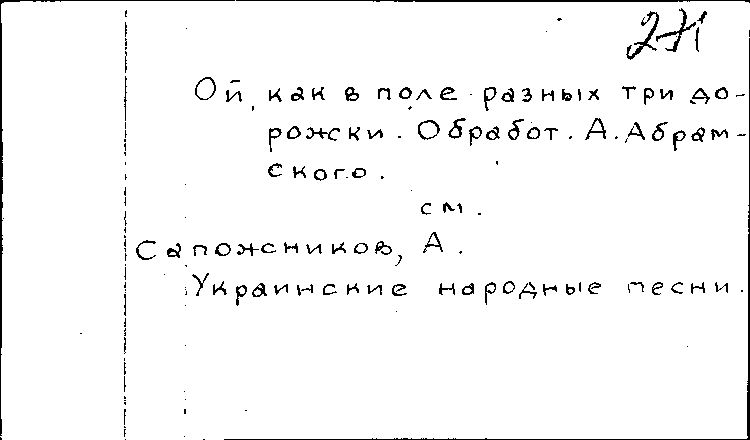 271
Ой, как в поле разных три до-
рожки. Обработ. А. Абрам-
ского.
см.
Сапожников, А.
Украинские народные песни.